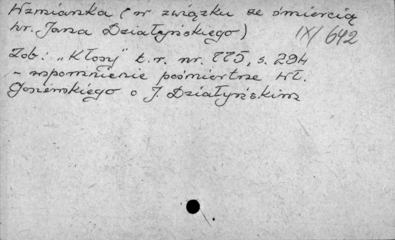 Wzmianka (w związku ze śmiercią
hr. Jana Działyńskiego)
IX/642
Zob: "Kłosy" t.r. nr. 775, s. 294
- wspomnienie pośmiertne Wł.
o J. Działyńskim